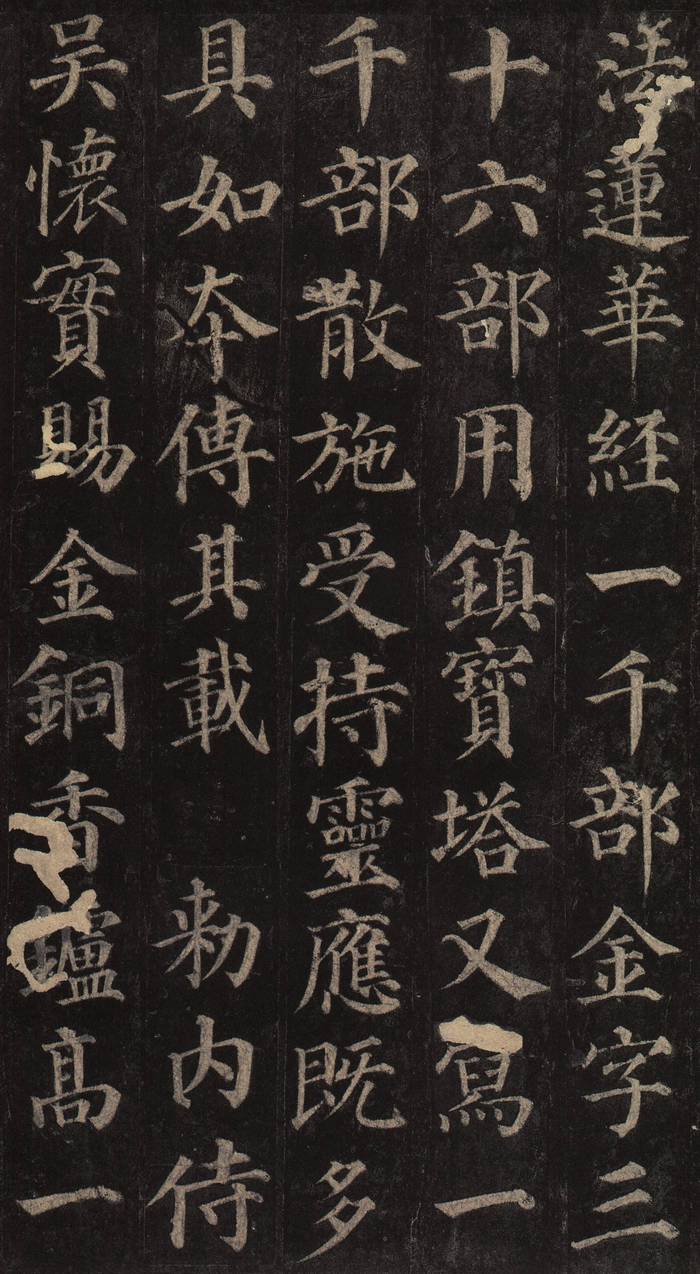 法蓮華経一千部金字三
十六部用鎮寶塔又寫一
千部散施受持靈應既多
具如夲傳其載敕内侍
吴懷實賜金銅香鑪髙一